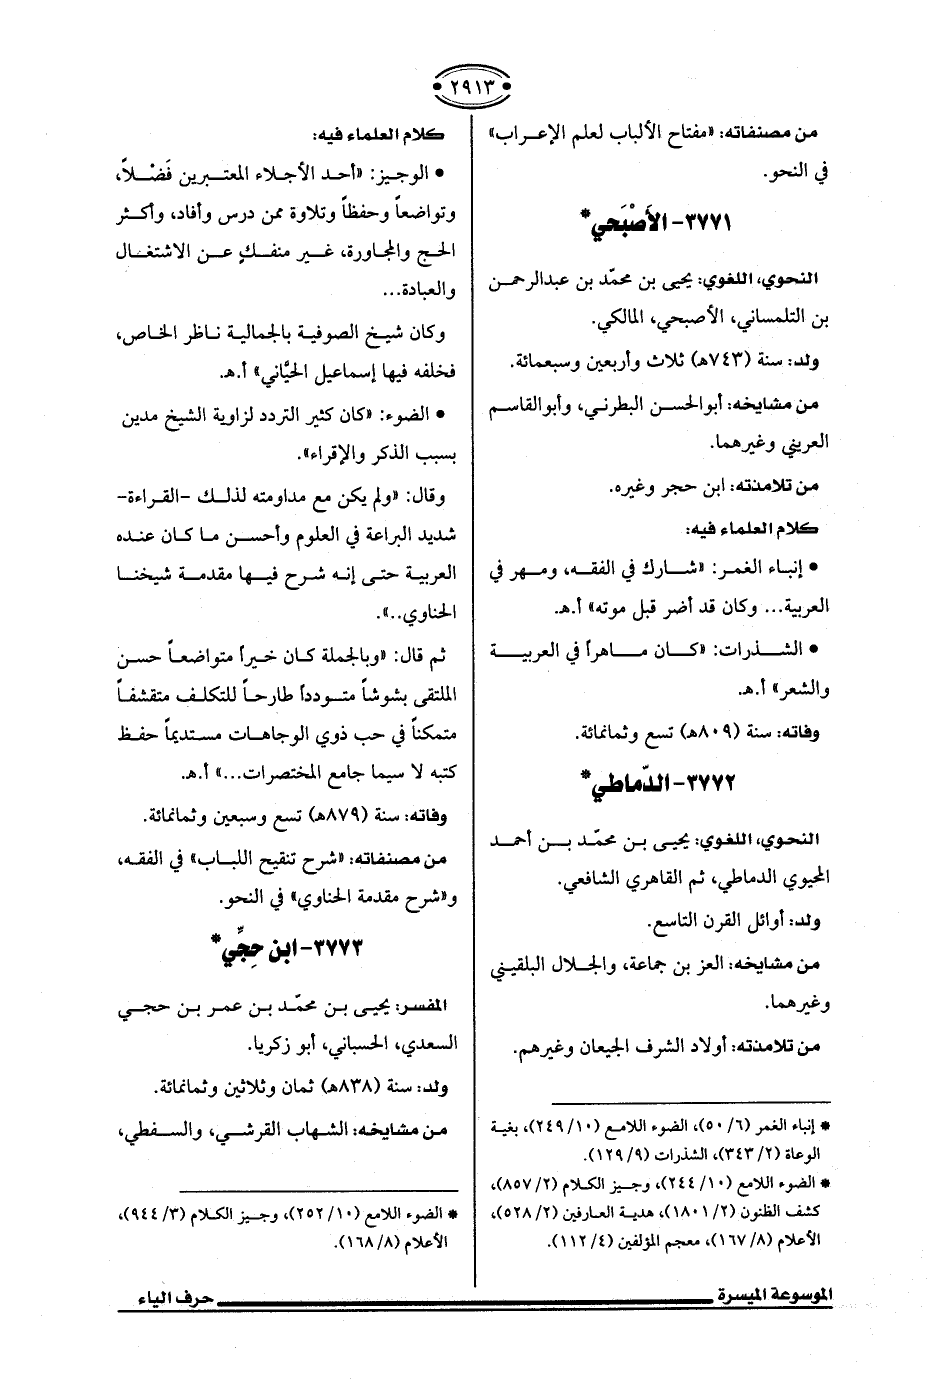 ٢٩١٣
من مصنفاته: «مفتاح الألباب لعلم الإعراب»
في النحو.
٣٧٧١- الأَصْبَحي*
النحوي، اللغوي: يحيى بن محمّد بن عبدالرحمن
بن التلمساني، الأصبحي، المالكي.
ولد: سنة (٧٤٣هـ) ثلاث وأربعين وسبعمائة.
من مشايخه: أبوالحسن البطرني، وأبوالقاسم
العريني وغيرهما.
من تلامذته: ابن حجر وغيره.
كلام العلماء فيه:
• إنباء الغمر: «شارك في الفقه، ومهر في
العربية... وكان قد أضر قبل موته» أ.هـ.
• الشذرات: «كان ماهراً في العربية
والشعر» أ.هـ.
وفاته: سنة (٨٠٩هـ) تسع وثمانمائة.
٣٧٧٢- الدّماطي*
النحوي، اللغوي: يحيى بن محمّد بن أحمد
المحيوي الدماطي، ثم القاهري الشافعي.
ولد: أوائل القرن التاسع.
من مشايخه: العز بن جماعة، والجلال البلقيني
وغيرهما.
من تلامذته: أولاد الشرف الجيعان وغيرهم.
* إنباء الغمر (٦/ ٥٠)، الضوء اللامع (١٠/ ٢٤٩)، بغية
الوعاة (٢/ ٣٤٣)، الشذرات (٩/ ١٢٩).
* الضوء اللامع (١٠/ ٢٤٤)، وجيز الكلام (٢/ ٨٥٧)،
كشف الظنون (٢/ ١٨٠١)، هدية العارفين (٢/ ٥٢٨)،
الأعلام (٨/ ١٦٧)، معجم المؤلفين (٤/ ١١٢).
كلام العلماء فيه:
• الوجيز: «أحد الأجلاء المعتبرين فَضْلاً،
وتواضعاً وحفظاً وتلاوة ممن درس وأفاد، وأكثر
الحج والمجاورة، غير منفكٍ عن الاشتغال
والعبادة...
وكان شيخ الصوفية بالجمالية ناظر الخاص،
فخلفه فيها إسماعيل الحيَّاني» أ.هـ.
• الضوء: «كان كثير التردد لزاوية الشيخ مدين
بسبب الذكر والإقراء».
وقال: «ولم يكن مع مداومته لذلك -القراءة-
شديد البراعة في العلوم وأحسن ما كان عنده
العربية حتى إنه شرح فيها مقدمة شيخنا
الحناوي..».
ثم قال: «وبالجملة كان خيراً متواضعاً حسن
الملتقى بشوشاً متودداً طارحاً للتكلف متقشفاً
متمكناً في حب ذوي الوجاهات مستديماً حفظ
كتبه لا سيما جامع المختصرات...» أ.هـ.
وفاته: سنة (٨٧٩هـ) تسع وسبعين وثمانمائة.
من مصنفاته: «شرح تنقيح اللباب» في الفقه،
و«شرح مقدمة الحناوي» في النحو.
٣٧٧٣- ابن حِجِّي*
المفسر: يحيى بن محمّد بن عمر بن حجي
السعدي، الحسباني، أبو زكريا.
ولد: سنة (٨٣٨هـ) ثمان وثلاثين وثمانمائة.
من مشايخه: الشهاب القرشي، والسفطي،
* الضوء اللامع (١٠/ ٢٥٢)، وجيز الكلام (٣/ ٩٤٤)،
الأعلام (٨/ ١٦٨).
الموسوعة الميسرة
حرف الياء